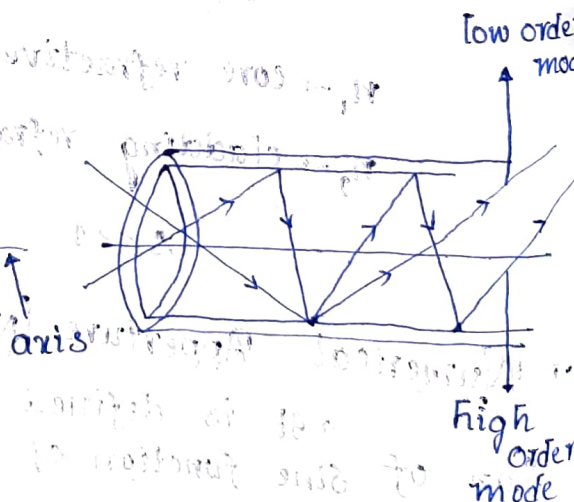 low orde
mod
axis
high
order
mode